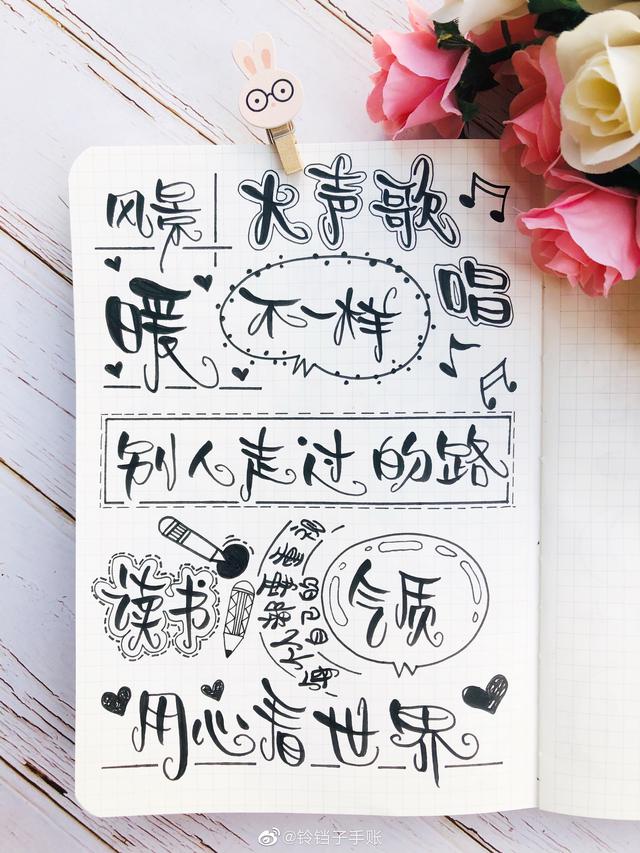 风景 大声歌
暖 不一样 唱
别人走过的路
读书 气质
用心看世界
@铃铛子手账